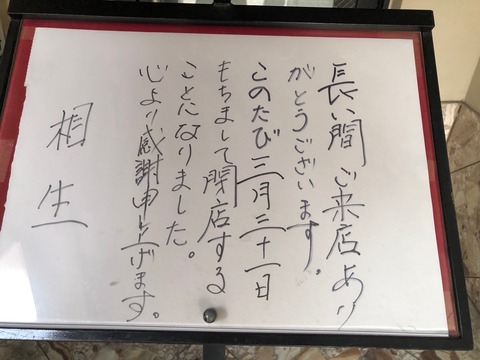 長い間ご来店あり
がとうございます。
このたび三月三十一日
もちまして閉店する
ことになりました。
心より感謝申し上げます。
相生